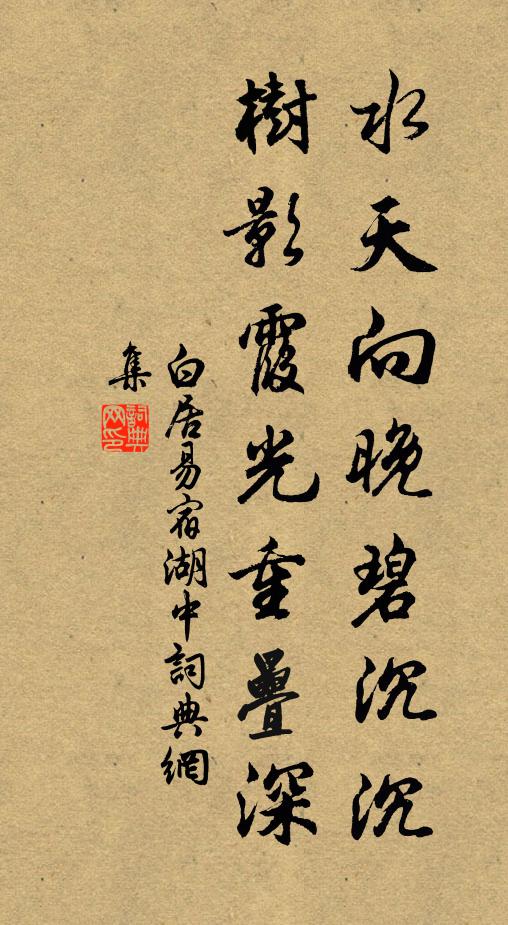 水天向晚碧沉沉
樹影霞光重疊深
白居易宿湖中詞典網
集
詞典
网印